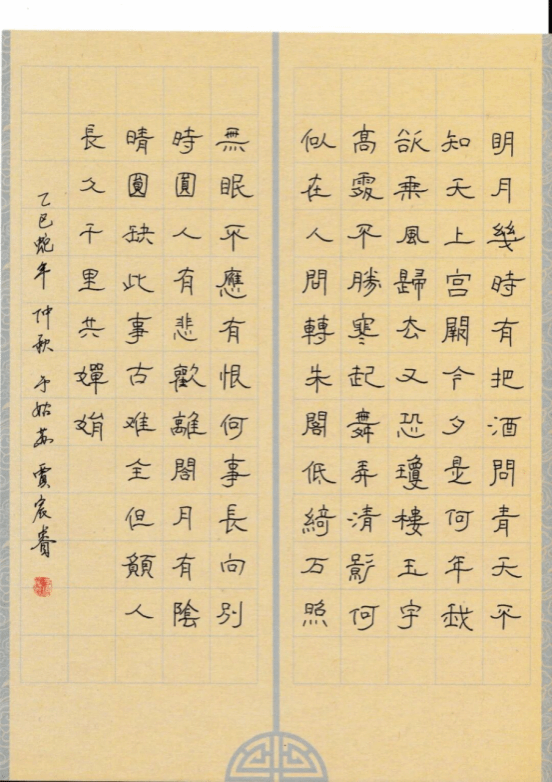 明月幾時有把酒問青天不
知天上宮闕今夕是何年我
欲乘風歸去又恐瓊樓玉宇
高處不勝寒起舞弄清影何
似在人間轉朱閣低綺戶照
無眠不應有恨何事長向別
時圓人有悲歡離閣月有陰
晴圓缺此事古难全但願人
長久千里共嬋娟
乙巳蛇年 仲秋 于姑苏